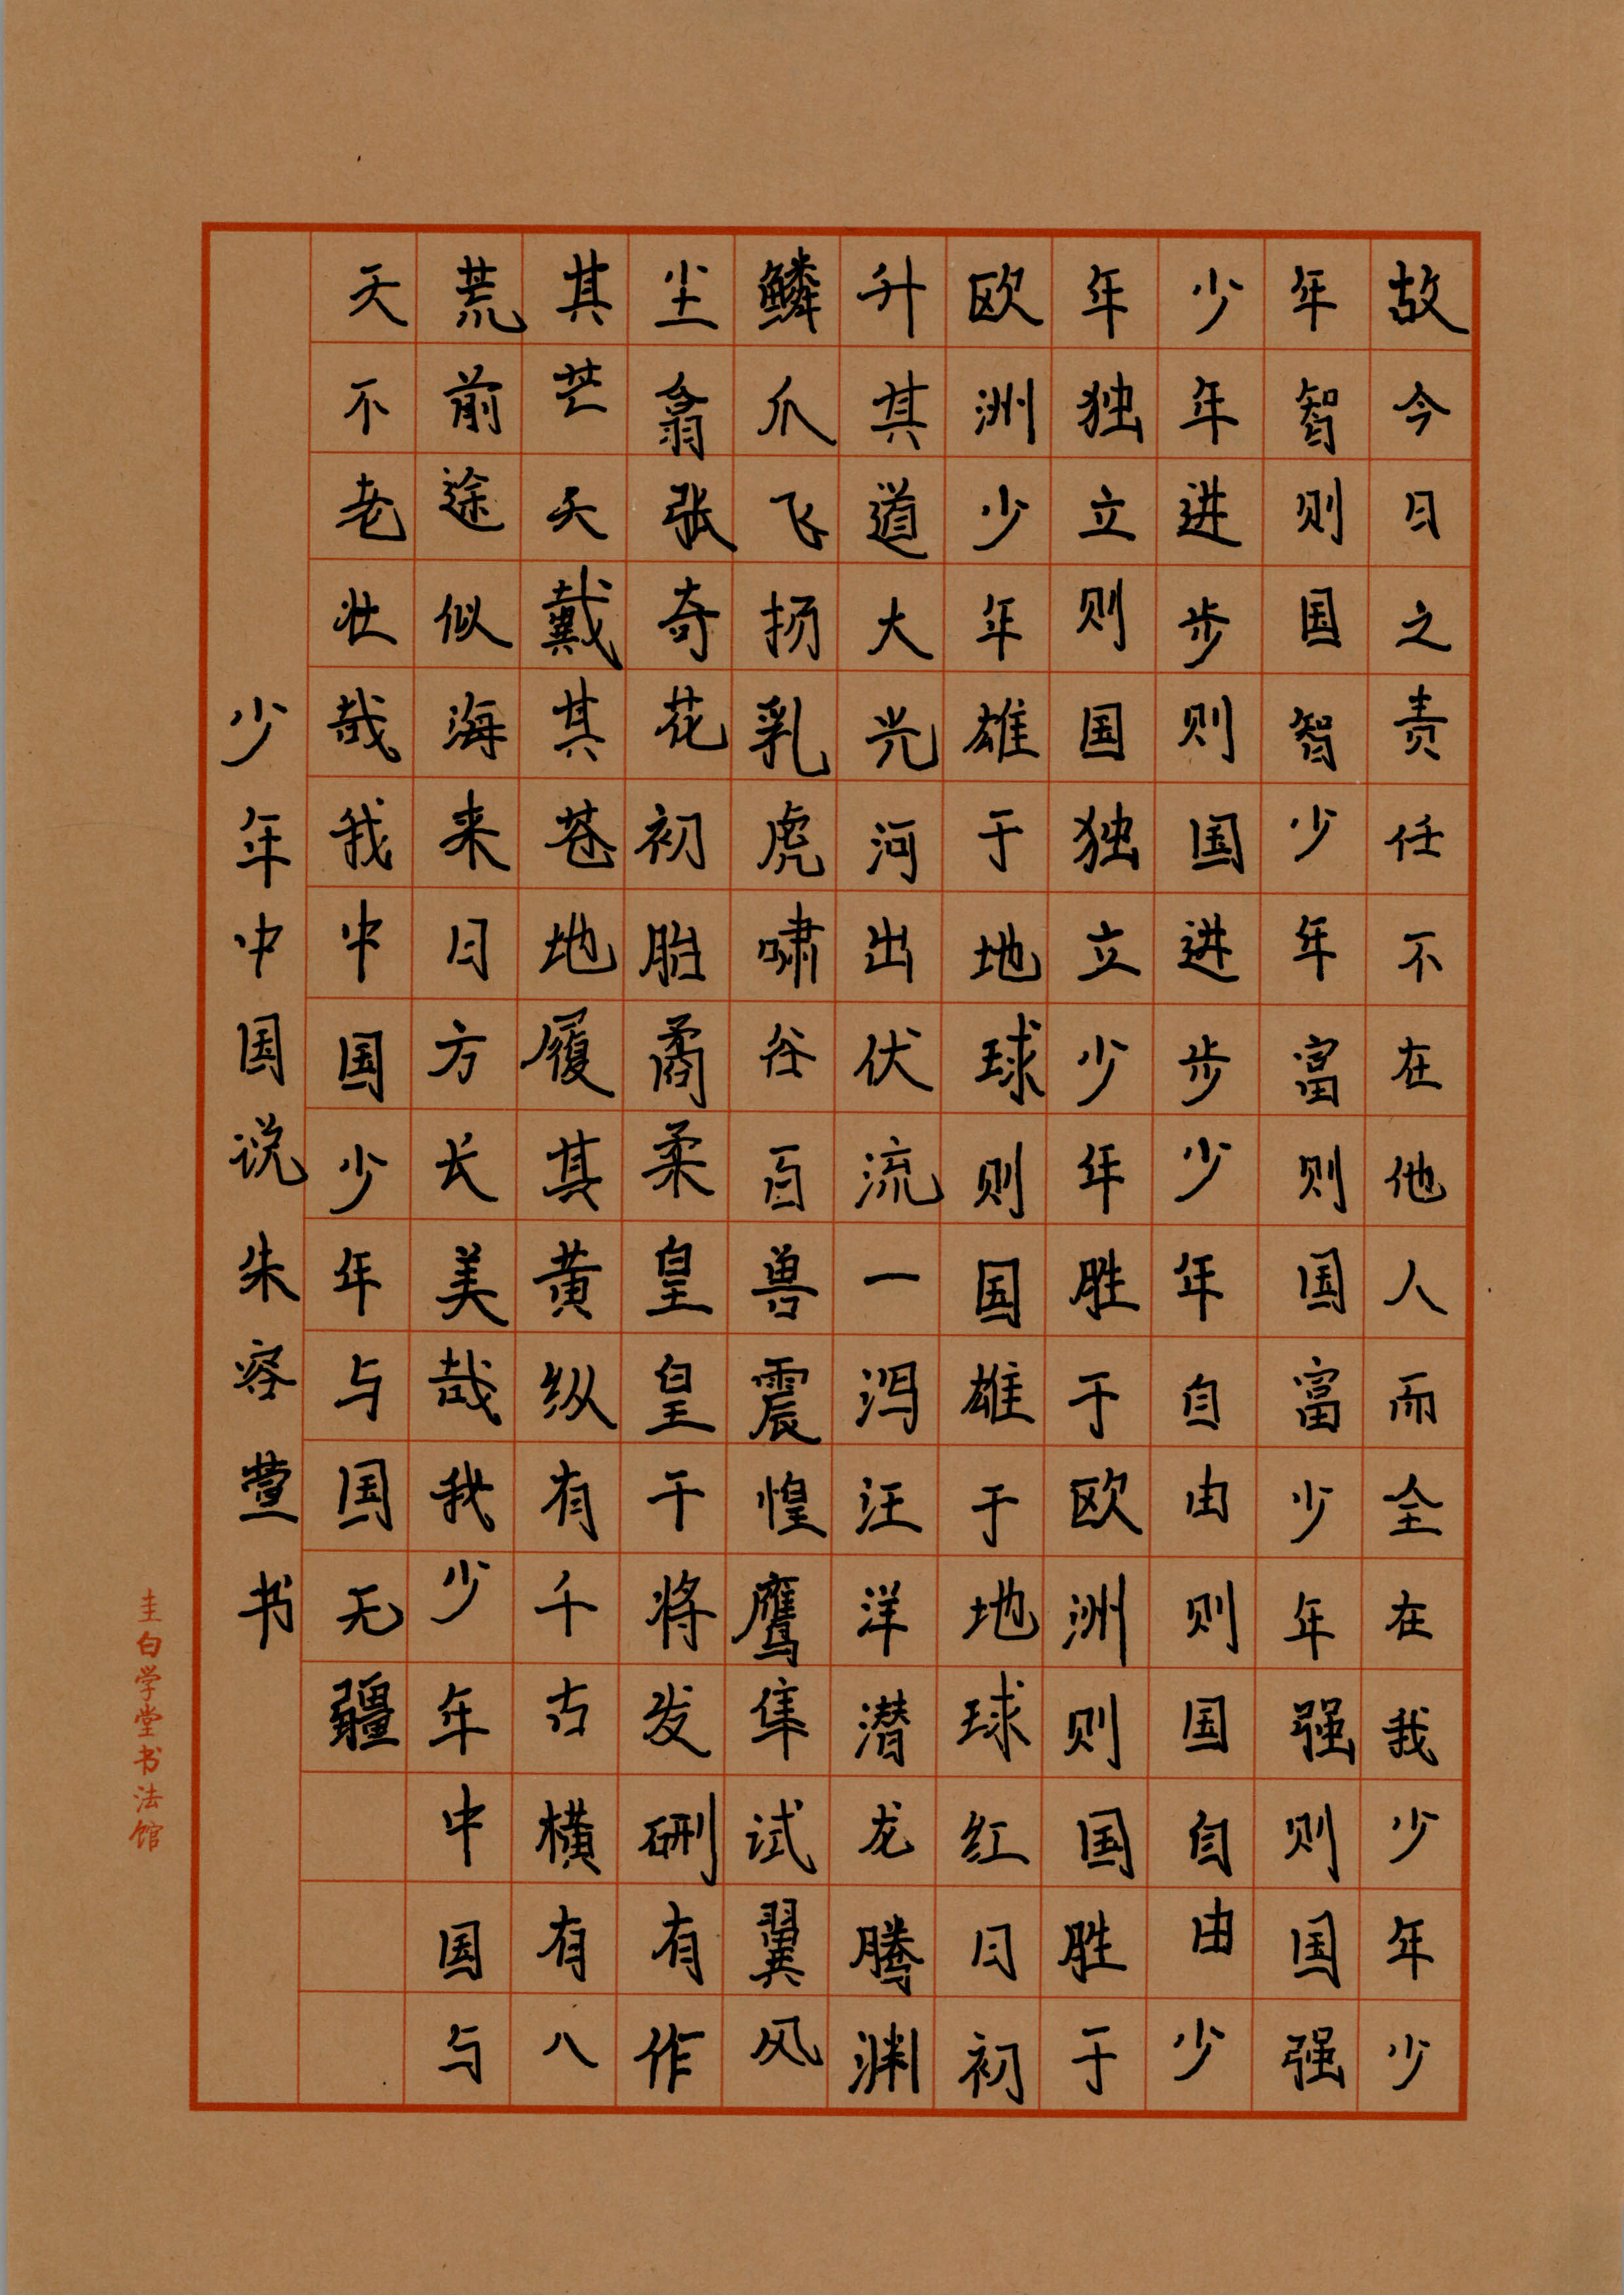 故今日之责任不在他人而全在我少年少
年智则国智少年富则国富少年强则国强
少年进步则国进步少年自由则国自由少
年独立则国独立少年胜于欧洲则国胜于
欧洲少年雄于地球则国雄于地球红日初
升其道大光河出伏流一泻汪洋潜龙腾渊
鳞爪飞扬乳虎啸谷百兽震惶鹰隼试翼风
尘翕张奇花初胎矞柔皇皇干将发硎有作
其芒天戴其苍地履其黄纵有千古横有八
荒前途似海来日方长美哉我少年中国与
天不老壮哉我中国少年与国无疆
少年中国说朱容萱书
圭白学堂书法馆